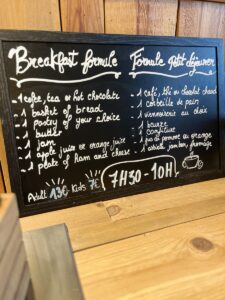 Breakfast formule
- 1 coffee, tea or hot chocolate
- 1 basket of bread
- 1 pastry of your choice
- 1 butter
- 1 jam
- 1 apple juice or orange juice
- 1 plate of ham and cheese
Formule Petit déjeuner
- 1 café, thé ou chocolat chaud
- 1 corbeille de pain
- 1 viennoiserie au choix
- 1 beurre
- 1 confiture
- 1 jus de pomme ou orange
- 1 assiette jambon, fromage
Adult 13€ Kids 7€
7H30 - 10H